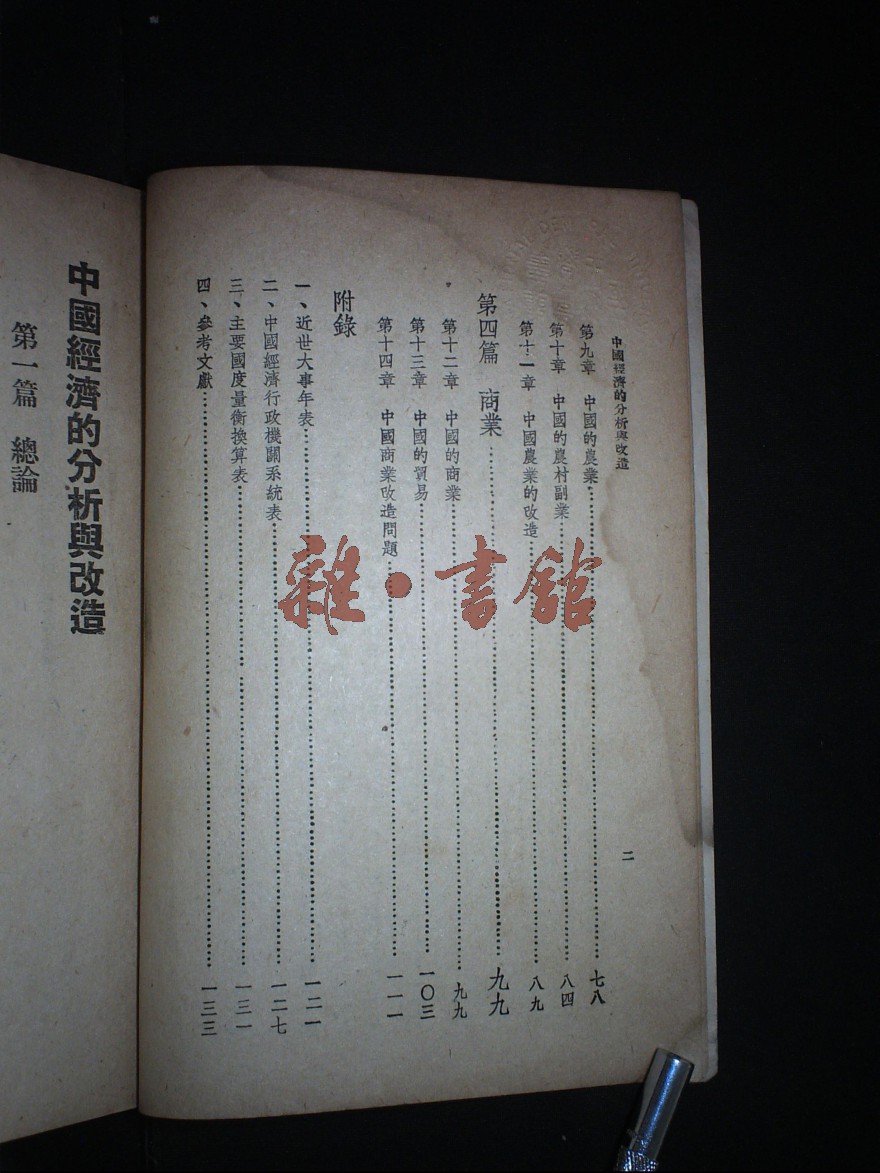 中國經濟的分析與改造
二
第九章 中國的農業……七八
第十章 中國的農村副業……八四
第十一章 中國農業的改造……八九
第四篇 商業……九九
第十二章 中國的商業……九九
第十三章 中國的貿易……一〇三
第十四章 中國商業改造問題……一一一
附錄
一、近世大事年表……一二一
二、中國經濟行政機關系統表……一二七
三、主要國度量衡換算表……一三一
四、參考文獻……一三三
中國經濟的分析與改造
第一篇 總論
雜·書館